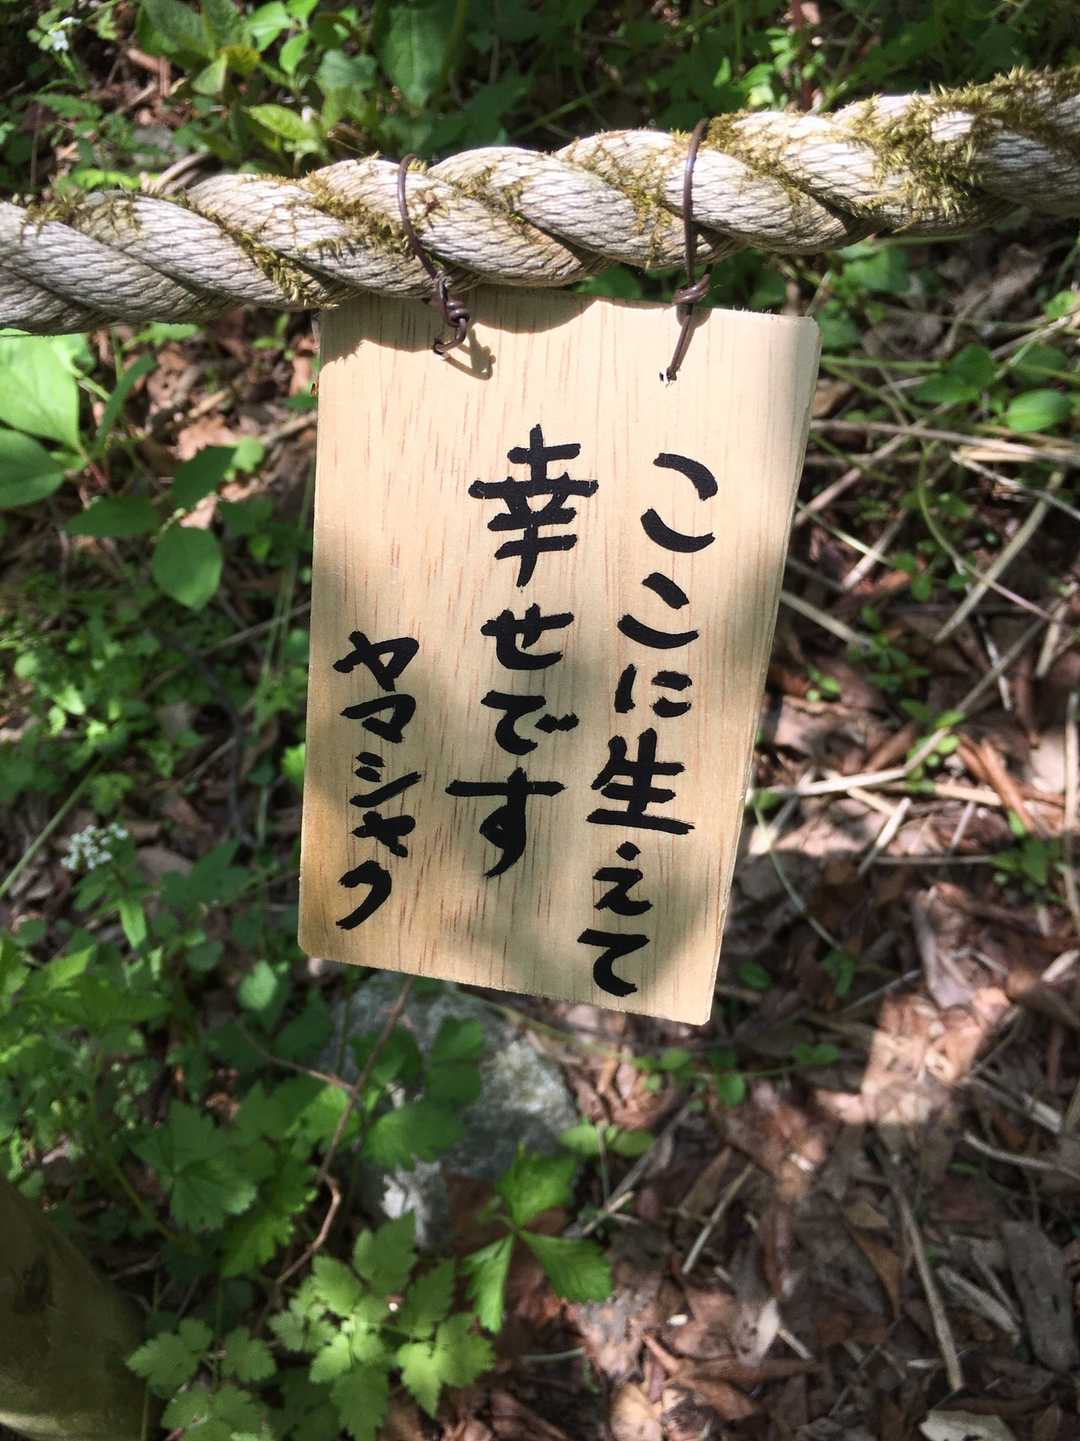 ここに生えて
幸せです
ヤマシャク